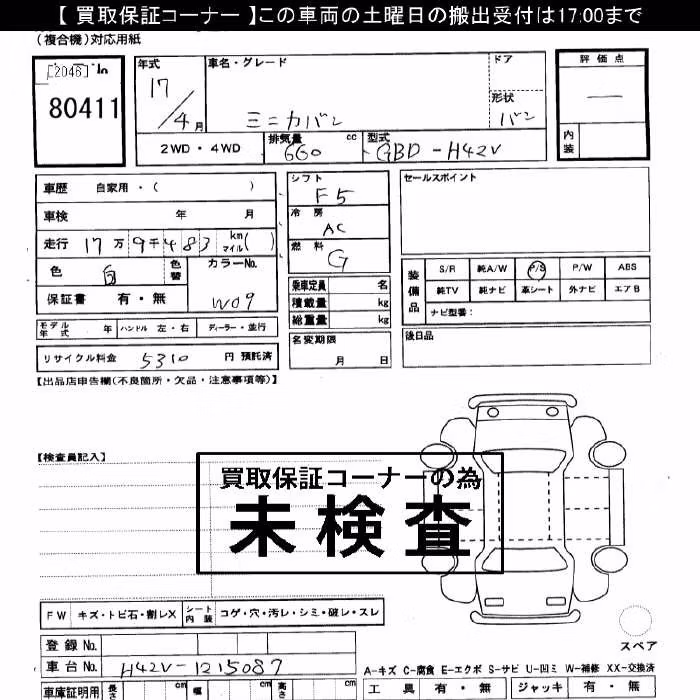 【 買取保証コーナー 】この車両の土曜日の搬出受付は17:00まで
(複合機)対応用紙
80411
年式 17/4月
車名・グレード ミニカバン
ドア
形状 バン
評価点 —
内装
2WD・4WD
排気量 660 cc
型式 GBD-H42V
車歴 自家用・( )
車検 年 月
走行 17万9千483 km マイル( )
色 白 色替
カラーNo. W09
保証書 有・無
シフト F5
冷房 AC
燃料 G
乗車定員 名
積載量 kg
総重量 kg
名変期限 月 日
セールスポイント
装備品
S/R 純A/W P/S P/W ABS
純TV 純ナビ 革シート 外ナビ エアB
ナビ型番:
後日品
モデル年式 年 ハンドル 左・右 ディーラー・並行
リサイクル料金 5310 円 預託済
【出品店申告欄(不良箇所・欠品・注意事項等)】
【検査員記入】
買取保証コーナーの為
未検査
FW キズ・トビ石・割レX シート内装 コゲ・穴・汚レ・シミ・破レ・スレ
スペア
登録No.
車台No. H42V-1215087
A-キズ C-腐食 E-エクボ S-サビ U-凹ミ W-補修 XX-交換済
車庫証明用 長さ cm 幅 cm 高さ cm
工具 有・無 ジャッキ 有・無